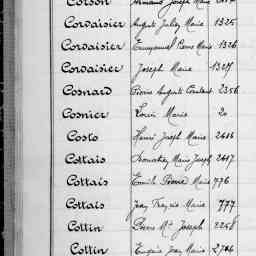 Corson Armand Joseph Marie
Cordaisier Auguste Julien Marie 1325
Cordaisier Emmanuel Pierre Marie 1326
Cordaisier Joseph Marie 1327
Cosnard Pierre Auguste Constant 2356
Cosnier Louis Marie 20
Costo Henri Joseph Marie 2416
Cottais Marie Joseph 2417
Cottais Emile Pierre Marie 776
Cottais Jean François Marie 777
Cottin Pierre Mie Joseph 2258
Cottin Eugène Jean Marie 2744